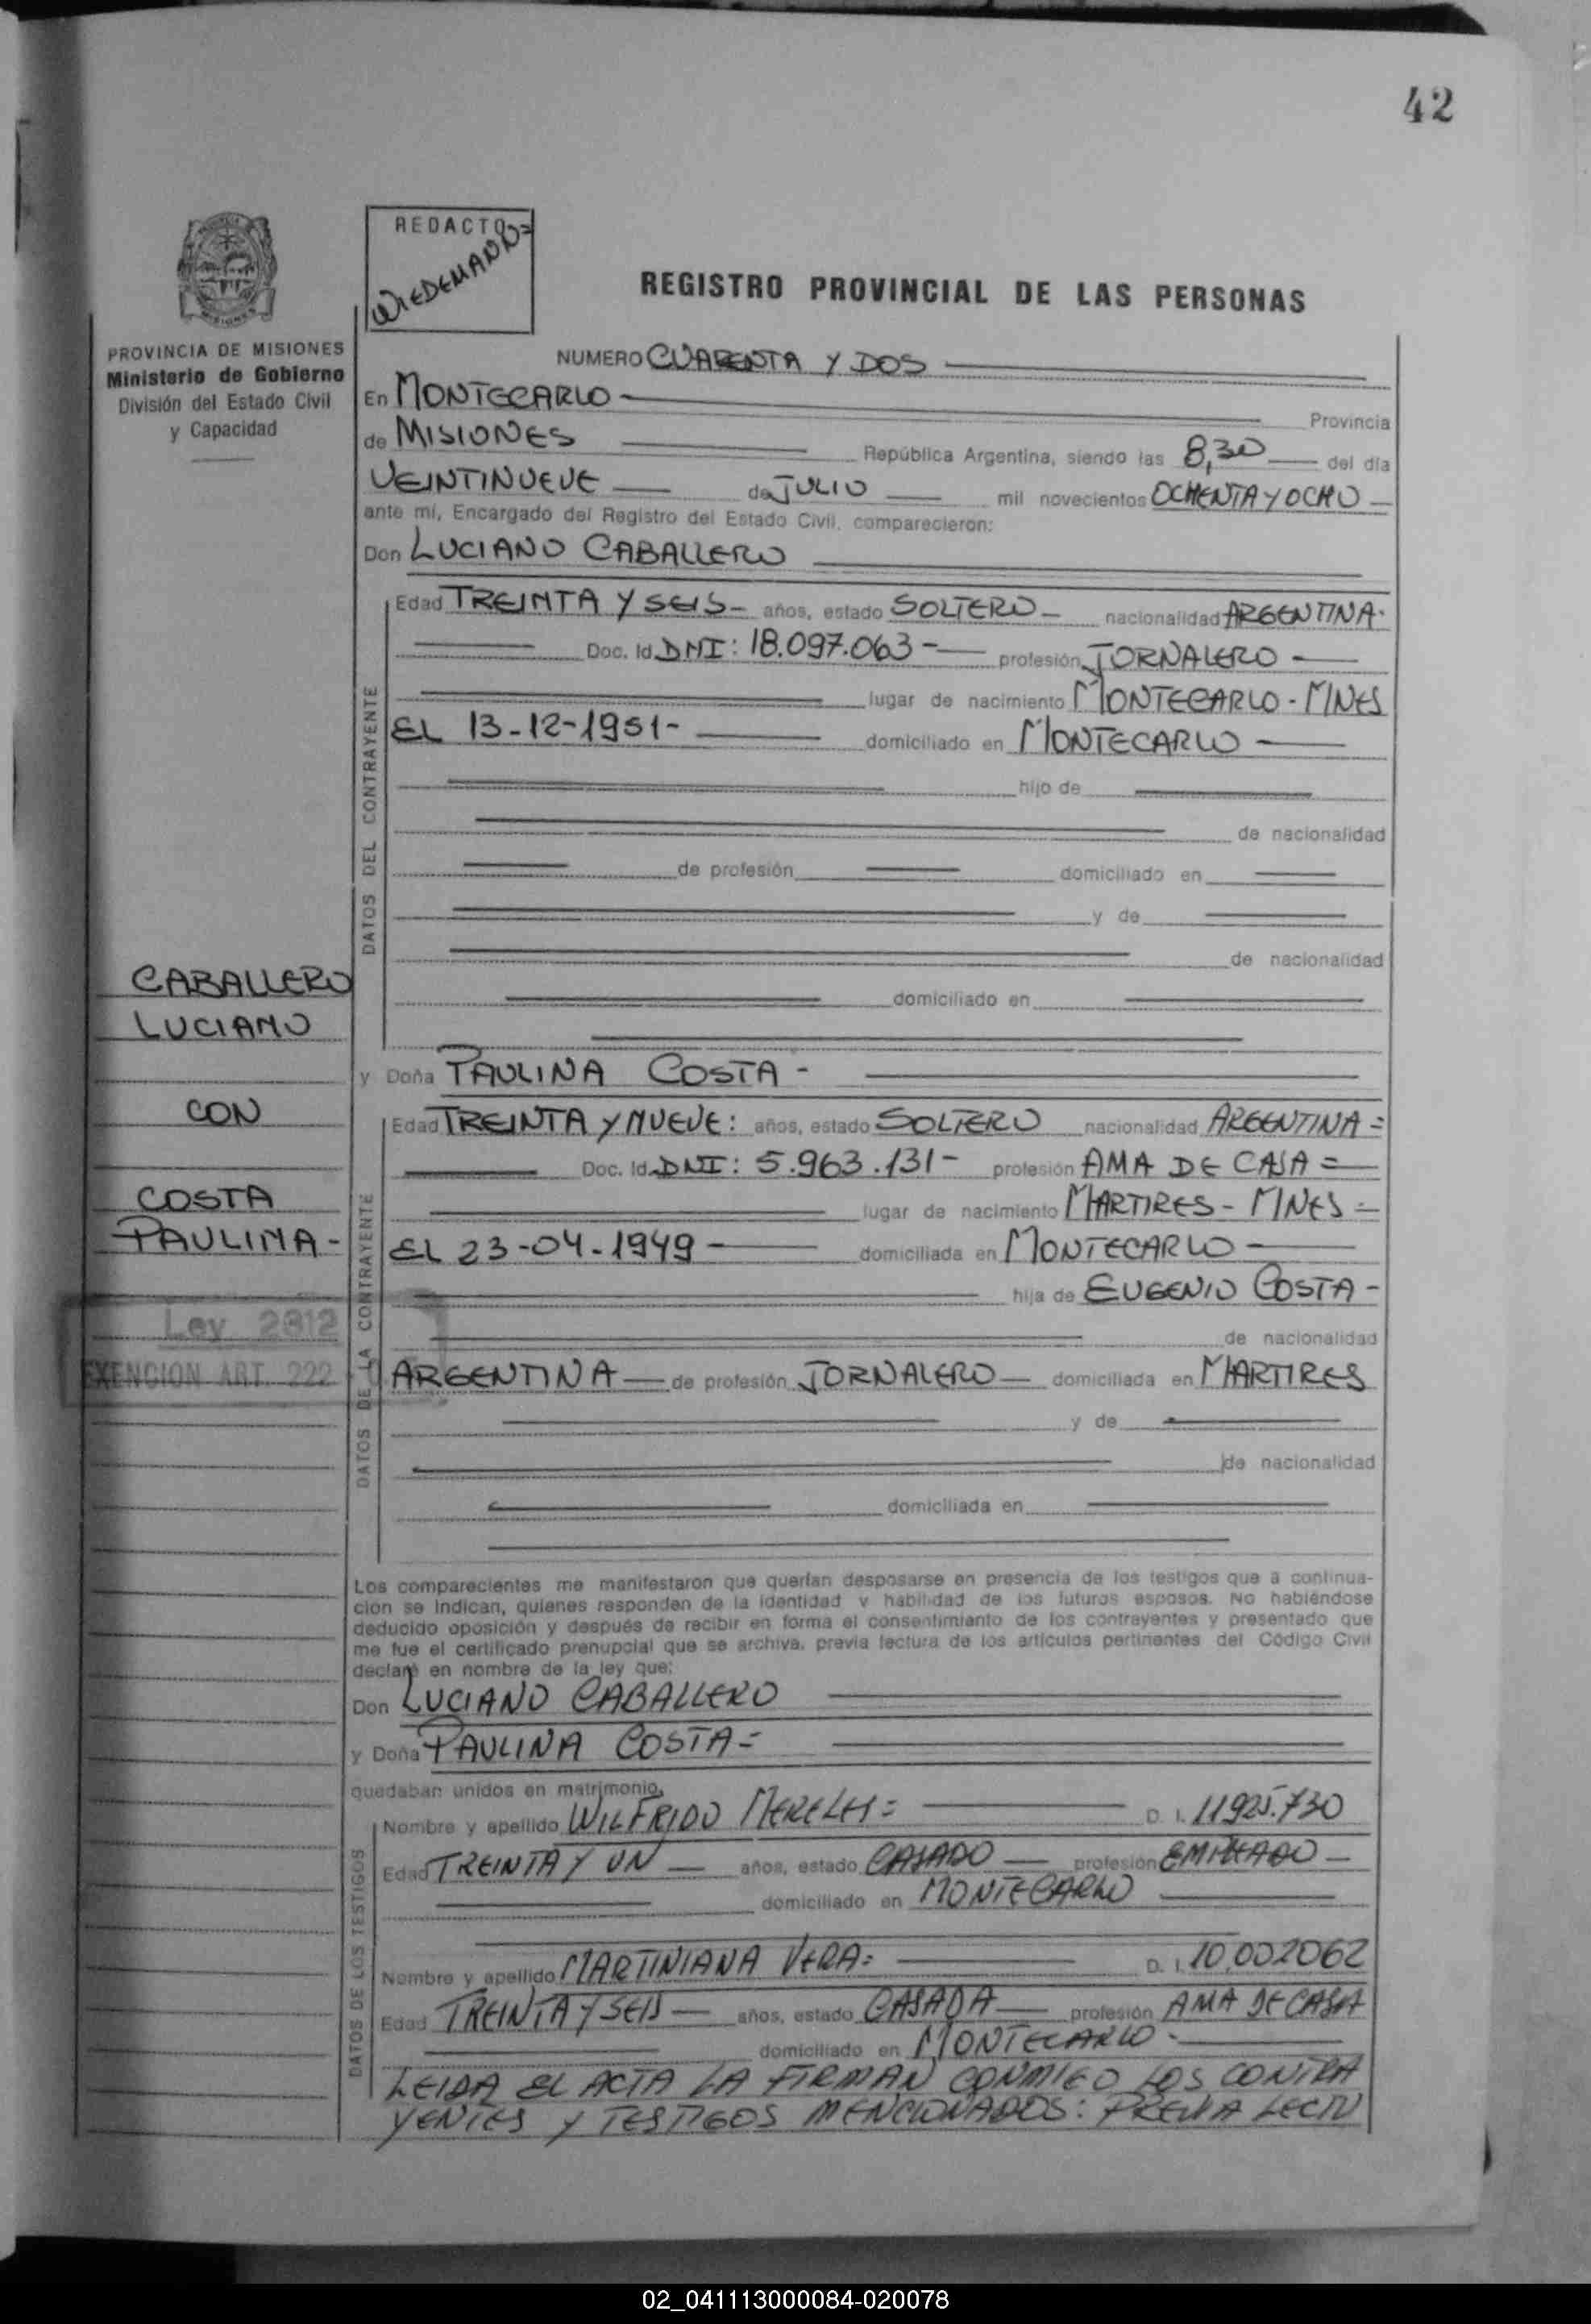 42
REDACTO
WIEDEMANN=
REGISTRO PROVINCIAL DE LAS PERSONAS
PROVINCIA DE MISIONES
Ministerio de Gobierno
División del Estado Civil
y Capacidad
NUMERO CUARENTA Y DOS
En MONTECARLO - Provincia
de MISIONES República Argentina, siendo las 8,30 del día
VEINTINUEVE de JULIO mil novecientos OCHENTA Y OCHO -
ante mí, Encargado del Registro del Estado Civil, comparecieron:
Don LUCIANO CABALLERO
DATOS DEL CONTRAYENTE
Edad TREINTA Y SEIS - años, estado SOLTERO - nacionalidad ARGENTINA.
Doc. Id. DNI: 18.097.063 - profesión JORNALERO -
lugar de nacimiento MONTECARLO - MNES
EL 13-12-1951- domiciliado en MONTECARLO -
hijo de
de nacionalidad
de profesión domiciliado en
y de
de nacionalidad
domiciliado en
CABALLERO
LUCIANO
CON
COSTA
PAULINA -
Ley 2312
EXENCION ART. 222
y Doña PAULINA COSTA -
DATOS DE LA CONTRAYENTE
Edad TREINTA Y NUEVE: años, estado SOLTERO nacionalidad ARGENTINA =
Doc. Id. DNI: 5.963.131 - profesión AMA DE CASA =
lugar de nacimiento MARTIRES - MNES =
EL 23-04-1949 - domiciliada en MONTECARLO -
hija de EUGENIO COSTA -
de nacionalidad
ARGENTINA - de profesión JORNALERO - domiciliada en MARTIRES
y de
de nacionalidad
domiciliada en
Los comparecientes me manifestaron que querían desposarse en presencia de los testigos que a continua-
ción se indican, quienes responden de la identidad y habilidad de los futuros esposos. No habiéndose
deducido oposición y después de recibir en forma el consentimiento de los contrayentes y presentado que
me fue el certificado prenupcial que se archiva, previa lectura de los artículos pertinentes del Código Civil
declaré en nombre de la ley que:
Don LUCIANO CABALLERO
y Doña PAULINA COSTA =
quedaban unidos en matrimonio,
DATOS DE LOS TESTIGOS
Nombre y apellido WILFRIDO MERELES = D. I. 11925.730
Edad TREINTA Y UN - años, estado CASADO - profesión EMPLEADO -
domiciliado en MONTECARLO
Nombre y apellido MARTINIANA VERA = D. I. 10.002062
Edad TREINTA Y SEIS - años, estado CASADA - profesión AMA DE CASA
domiciliado en MONTECARLO -
LEIDA EL ACTA LA FIRMAN CONMIGO LOS CONTRA
YENTES Y TESTIGOS MENCIONADOS: PREVIA LECTU
02_041113000084-020078